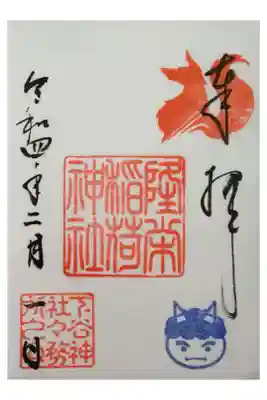 奉拝
隆栄
稲荷
神社
令和四年二月一日
下谷神
社々務
所之印